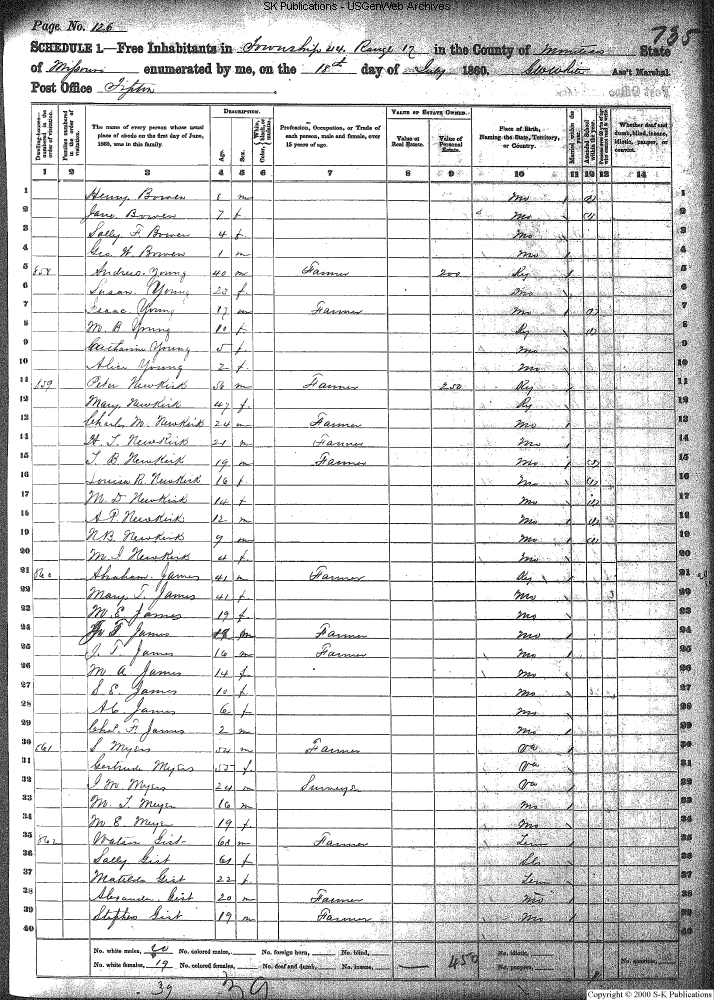 SK Publications - USGenWeb Archives
Page No. 126
735
SCHEDULE 1.—Free Inhabitants in Township 44 Range 17 in the County of Moniteau State
of Missouri enumerated by me, on the 18th day of July 1860. Ass't Marshal
Post Office Tipton
Dwelling-houses—numbered in the order of visitation.
Families numbered in the order of visitation.
The name of every person whose usual place of abode on the first day of June, 1860, was in this family.
DESCRIPTION.
Age.
Sex.
Color, White, black, or mulatto.
Profession, Occupation, or Trade of each person, male and female, over 15 years of age.
VALUE OF ESTATE OWNED.
Value of Real Estate.
Value of Personal Estate.
Place of Birth, Naming the State, Territory, or Country.
Married within the year.
Attended School within the year.
Whether deaf and dumb, blind, insane, idiotic, pauper, or convict.
1 2 3 4 5 6 7 8 9 10 11 12 13 14
1 Henry Bowen 8 m Mo / (1) 1
2 Jane Bowen 7 f Mo (1) 2
3 Sally F. Bowen 4 f Mo 3
4 Geo. H. Bowen 1 m Mo 4
5 858 Andrew Young 40 m Farmer 200 Ky 5
6 Susan Young 23 f Mo 6
7 Isaac Young 17 m Farmer Mo (1) 7
8 M. B Young 10 f Ky (1) 8
9 Catharine Young 5 f Mo 9
10 Alice Young 2 f Mo 10
11 859 Peter Newkirk 56 m Farmer 250 Ky 11
12 Mary Newkirk 47 f Ky 12
13 Charles M. Newkirk 24 m Farmer Mo 13
14 H. T. Newkirk 21 m Farmer Mo 14
15 T. B Newkirk 19 m Farmer Mo (1) 15
16 Louisa R. Newkirk 16 f Mo (1) 16
17 M. D Newkirk 14 f Mo (1) 17
18 A P. Newkirk 12 m Mo (1) 18
19 N.B. Newkirk 9 m Mo (1) 19
20 M. J Newkirk 4 f Mo
21 860 Abraham James 41 m Farmer Ky 21
22 Mary T. James 41 f Mo
23 M. E. James 19 f Mo
24 James 18 m Farmer Mo 24
25 J. T James 16 m Farmer Mo 25
26 M. A James 14 f Mo 26
27 S. E. James 10 f Mo 27
28 A C. James 6 f Mo 28
29 Chas. F. James 2 m Mo
30 861 S Myers 52 m Farmer Va
31 Gertrude Myers 55 f Va 31
32 J. M. Myers 24 m Surveyor Va
33 M. T. Meyer 16 m Mo
34 M. E. Meyer 19 f Mo
35 862 Watson Gist 60 m Farmer Tenn
36 Sally Gist 61 f
37 Matilda Gist 22 f Tenn
38 Alexander Gist 20 m Farmer Mo
39 Stephen Gist 19 m Farmer Mo
40
No. white males, 20 No. colored males, No. foreign born, No. blind, — 450 No. idiotic, No. convicts,
No. white females, 19 No. colored females, No. deaf and dumb, No. insane, No. paupers,
39 39
Copyright © 2000 S-K Publications